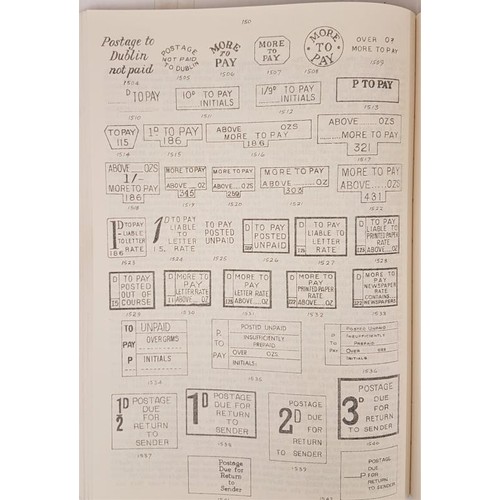 180
Postage to
Dublin
not paid
1504
POSTAGE
NOT PAID
TO DUBLIN
1505
MORE
TO
PAY
1506
MORE
TO
PAY
1507
MORE
TO
PAY
1508
OVER OZ
MORE TO PAY
1509
D TO PAY
1510
10D TO PAY
INITIALS
1511
1/9D TO PAY
INITIALS
1512
P TO PAY
1513
TO PAY
115
1514
1D TO PAY
186
1515
ABOVE OZS
MORE TO PAY
186
1516
ABOVE OZS
MORE TO PAY
321
1517
ABOVE OZS
1/-
MORE TO PAY
186
1518
MORE TO PAY
ABOVE OZ
345
1519
MORE TO PAY
ABOVE OZS
1520
MORE TO PAY
ABOVE OZ
303
1521
MORE TO PAY
ABOVE OZS
431
1522
1D TO PAY
LIABLE
TO LETTER
RATE
186
1523
1D TO PAY
LIABLE TO
LETTER
RATE
1524
TO PAY
POSTED
UNPAID
1525
D TO PAY
POSTED
UNPAID
1526
D TO PAY
LIABLE TO
LETTER
RATE
1527
D TO PAY
LIABLE TO
PRINTED PAPER
RATE
1528
D TO PAY
POSTED
OUT OF
COURSE
1529
D MORE TO
PAY
LETTER RATE
ABOVE OZ
1530
D MORE TO
PAY
LETTER RATE
ABOVE OZ
1531
D MORE TO
PAY
PRINTED PAPER
RATE
ABOVE OZ
1532
D MORE TO
PAY
NEWSPAPER
RATE
CONTAINS
NEWSPAPERS
1533
TO UNPAID
PAY OVER GRMS
P INITIALS
1534
P. POSTED UNPAID
TO INSUFFICIENTLY
PREPAID
PAY OVER OZS
INITIALS:
1535
POSTED UNPAID
P. INSUFFICIENTLY
TO PREPAID
PAY OVER
INITIALS
1536
1D/2 POSTAGE
DUE
FOR
RETURN
TO
SENDER
1537
1D POSTAGE
DUE FOR
RETURN
TO SENDER
1538
2D POSTAGE
DUE
FOR
RETURN
TO
SENDER
1539
3D POSTAGE
DUE
FOR
RETURN
TO SENDER
1540
Postage
Due for
Return
to
Sender
POSTAGE
DUE
P FOR
RETURN
TO SENDER